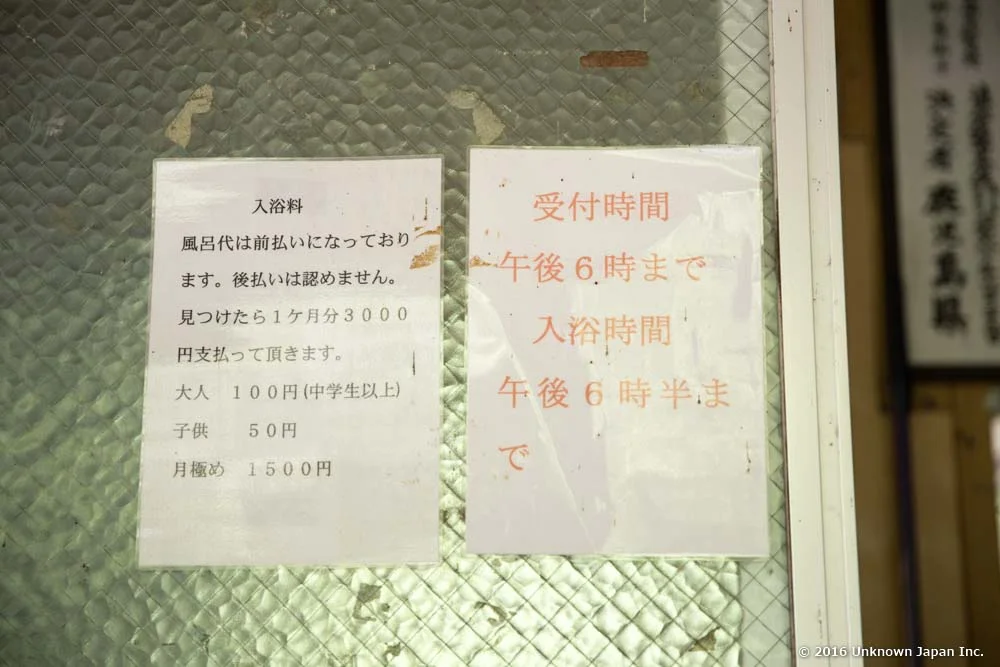 入浴料
風呂代は前払いになっており
ます。後払いは認めません。
見つけたら１ケ月分３０００
円支払って頂きます。
大人　１００円(中学生以上)
子供　　５０円
月極め　１５００円
受付時間
午後６時まで
入浴時間
午後６時半ま
で
© 2016 Unknown Japan Inc.